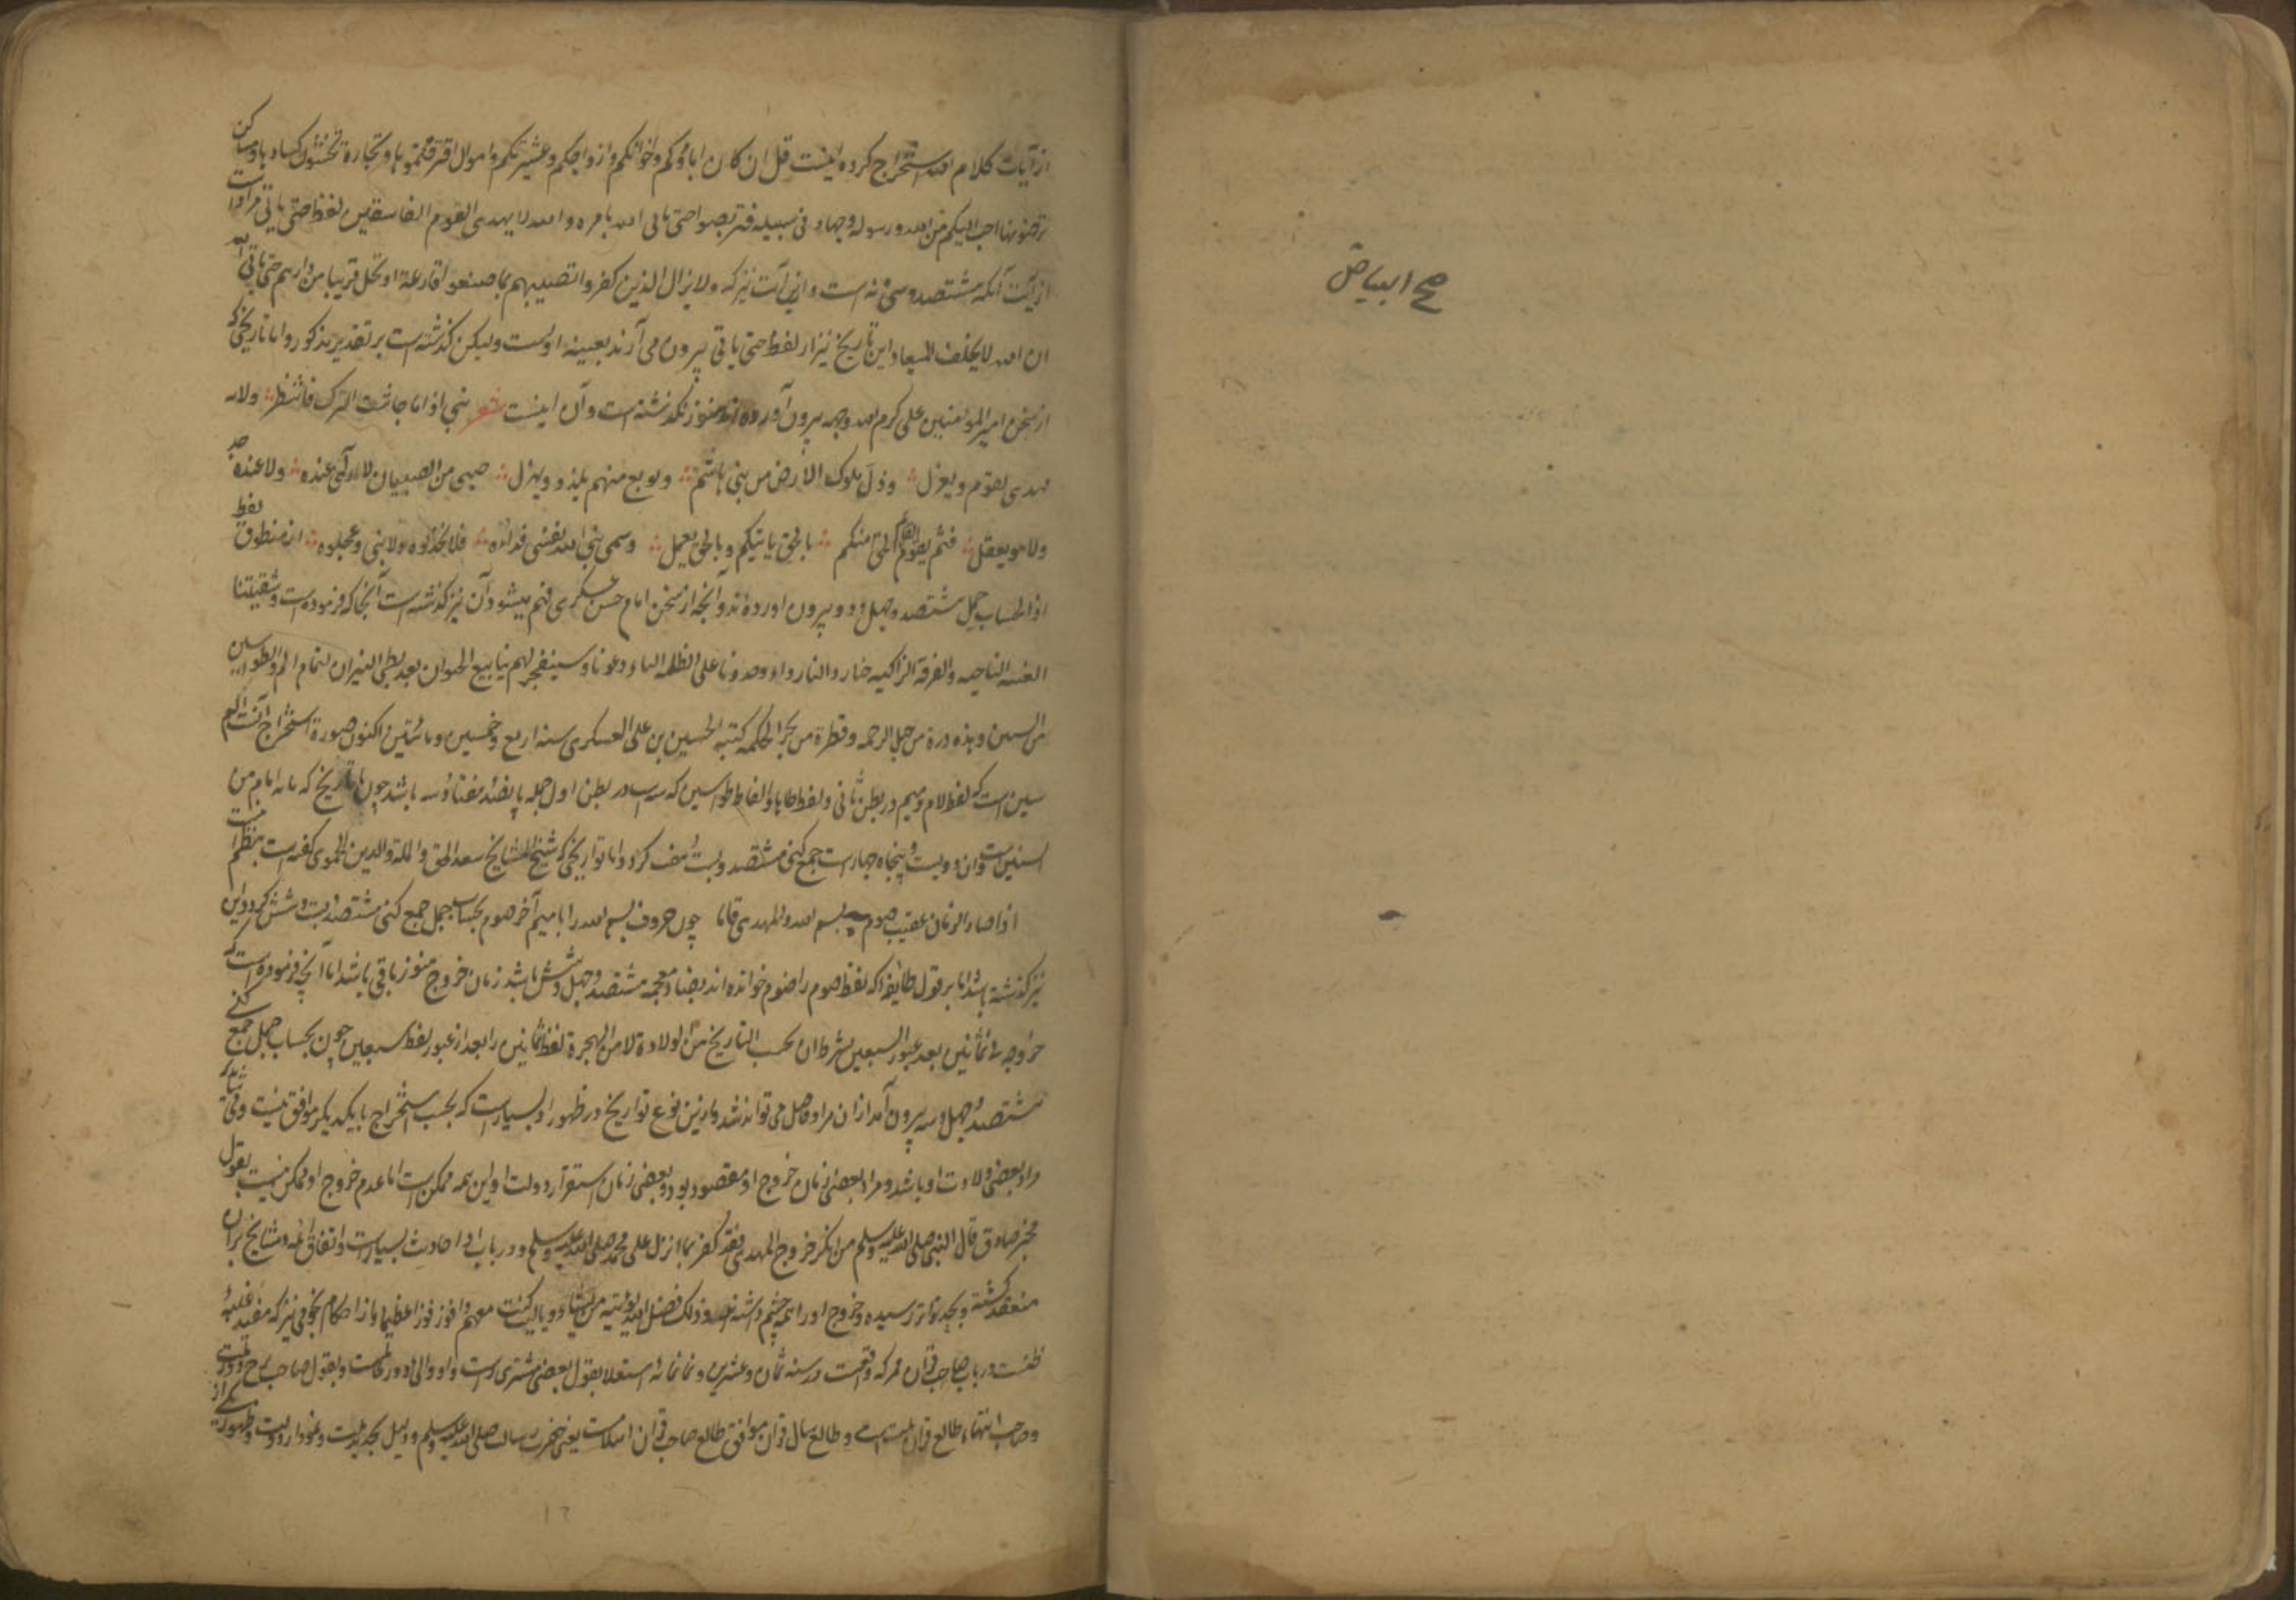 صح البیاض
از آیات کلام الله استخراج کرده اینست قل ان کان اباؤکم واخوانکم وازواجکم وعشیرتکم واموال اقترفتموها وتجارة تخشون کسادها ومساکن
ترضونها احب الیکم من الله ورسوله وجهاد فی سبیله فتربصوا حتی یاتی الله بامره والله لا یهدی القوم الفاسقین لفظ حتی یاتی مراد است
از آیت آنکه هشتصد وسی و نه است و این آیت نیز که ولا یزال الذین کفروا تصیبهم بما صنعوا قارعة او تحل قریبا من دارهم حتی یاتی
ان الله لا یخلف المیعاد این تاریخ نیز از لفظ حتی یاتی بیرون می آرند بعینه اوست ولیکن گذشته است بر تقدیر مذکور و اما تاریخی که
از سخن امیر المومنین علی کرم الله وجهه بیرون آورده اند هنوز نگذشته است و آن اینست شعر بنی اذا ما جاشت الترک فانتظر ولایة
مهدی یقوم ویعزل وذل ملوک الارض من بنی هاشم وبویع منهم یلذ ویهزل صبی من الصبیان لا رأی عنده ولا عنده جد
ولا هو یعقل فثم یقوم القائم الحق منکم بالحق یاتیکم وبالحق یعمل وسمی نبی الله نفسی فداؤه فلا تخذلوه ولا بنی وعجلوه از منطوق لفظ
اذا بحساب جمل هشتصد وچهل ودو بیرون اورده اند و آنچه از سخن امام حسن عسکری فهم میشود آن نیز گذشته است آنجا که فرموده است وشیعتنا
الفئة الناجیه والفرقة الزاکیه صاروا لنا ردا وصونا وعلی الظلمة البا وعونا وسینفجر لهم ینابیع الحیوان بعد لظی النیران لتمام الم والطواسین
من السنین وهذه درة من جبل الرحمه وقطرة من بحر الحکمه کتبه الحسین بن علی العسکری سنه اربع وخمسین ومائتین اکنون صورة استخراج آنست
سین است که لفظ لام ومیم در بطن ثانی ولفظ طاها والفاظ طواسین که باشد چون با تاریخ که امام من
السنین است و آن دویست وپنجاه چهار است جمع کنی هشتصد وبیست واما تواریخی که شیخ المشایخ سعد الحق والملة والدین الحموی گفته است بنظم
اذا صار الزمان عقیب صوم بسم الله والمهدی قاما چون حروف بسم الله را با میم آخر صوم بحساب جمل جمع کنی هشتصد بیست وشش گردد این
نیز گذشته باشد اما بر قول طایفه که لفظ صوم را ضوم خوانده اند بضاد معجمه هشتصد وچهل وشش باشد زمان خروج هنوز باقی باشد اما آنچه فرموده است که
خروجه فی ثمانین بعد عبور السبعین بشرط ان یحسب التاریخ من الولادة لا من الهجرة لفظ ثمانین را بعد از عبور لفظ سبعین چون بحساب جمل جمع کنی
هشتصد وچهل وسه بیرون آمد از آن مراد حاصل می تواند شد وازین نوع تواریخ در ظهور او بسیار است که بحسب استخراج با یکدیگر موافق نیست
مراد بعضی ولادت او باشد ومراد بعضی زمان خروج او مقصود بود وبعضی زمان استقرار دولت او این همه ممکن است اما عدم خروج او ممکن نیست بقول
مخبر صادق قال النبی صلی الله علیه وسلم من انکر خروج المهدی فقد کفر بما انزل علی محمد صلی الله علیه وسلم ودر باب او احادیث بسیار است واتفاق ائمه ومشایخ بر آن
منعقد گشته وبحد تواتر رسیده وخروج او را همه چشم داشته اند وذلک فضل الله یؤتیه من یشاء ویا لیتنی کنت معهم فافوز فوزا عظیما واز احکام نجومی نیز که مفید غلبه
ظنست در باب صاحب قران که واقعست در سنه ثمان وعشرین وثمانمائة استعلا بقول بعضی مشتری راست واو والی دور قمر است وبقول صاحب
وصاحب انتها طالع قران است وطالع سال قران موافق طالع صاحب قران اسلامست یعنی حضرت رسالت صلی الله علیه وسلم ودلیل تجدید ملت
۱۲